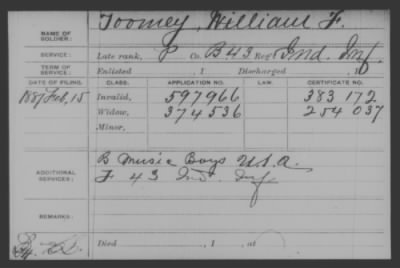 NAME OF SOLDIER: Toomey, William F.
SERVICE: Late rank, P Co. B 43 Reg't Ind. Inf.
TERM OF SERVICE: Enlisted , 1 Discharged , 1
DATE OF FILING. CLASS. APPLICATION NO. LAW. CERTIFICATE NO.
1887 Feb, 15 Invalid, 597966 383 172
Widow, 374536 254 037
Minor,
ADDITIONAL SERVICES: B Music Boys U.S.A.
F 43 Ind. Inf
REMARKS:
Died , 1 , at